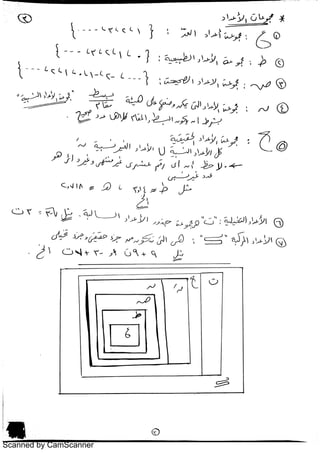 * مجموعات الأعداد ③
① ع : مجموعة أعداد العد : { ١، ٢، ٣، ٤، ---- }
② ط : مجموعة الأعداد الطبيعية : { ٠، ١، ٢، ٣، --- }
③ ص : مجموعة الأعداد الصحيحة : { ---، -٢، -١، ٠، ١، ٢، --- }
④ ن : مجموعة الأعداد التى يمكن وضعها على هيئة بسط / مقام "مجموعة الأعداد النسبية"
بشرط أن يكون البسط، المقام كلاهما عدد صحيح
⑤ ح : مجموعة الأعداد الحقيقية
كل الأعداد النسبية ن ∪ الأعداد الغير نسبية نَ
لاحظ أنه أى رقم عشرى غير منتهى وغير دائر هو
عدد غير نسبى
مثل ط = ٣,١٤ ، هـ = ٢,٧١٨
إلخ
⑥ الأعداد التخيلية : "ت" مجموعة جذور الأعداد السالبة. مثل = ٣ت
⑦ الأعداد المركبة "ك" : هى التى تتكون من جزء حقيقى وجزء تخيلى
مثل ٩ + ٩ت أو -٣ + ٧ت إلخ.
ت
ح
نَ
ن
ص
ط
ع
ك
②
Scanned by CamScanner